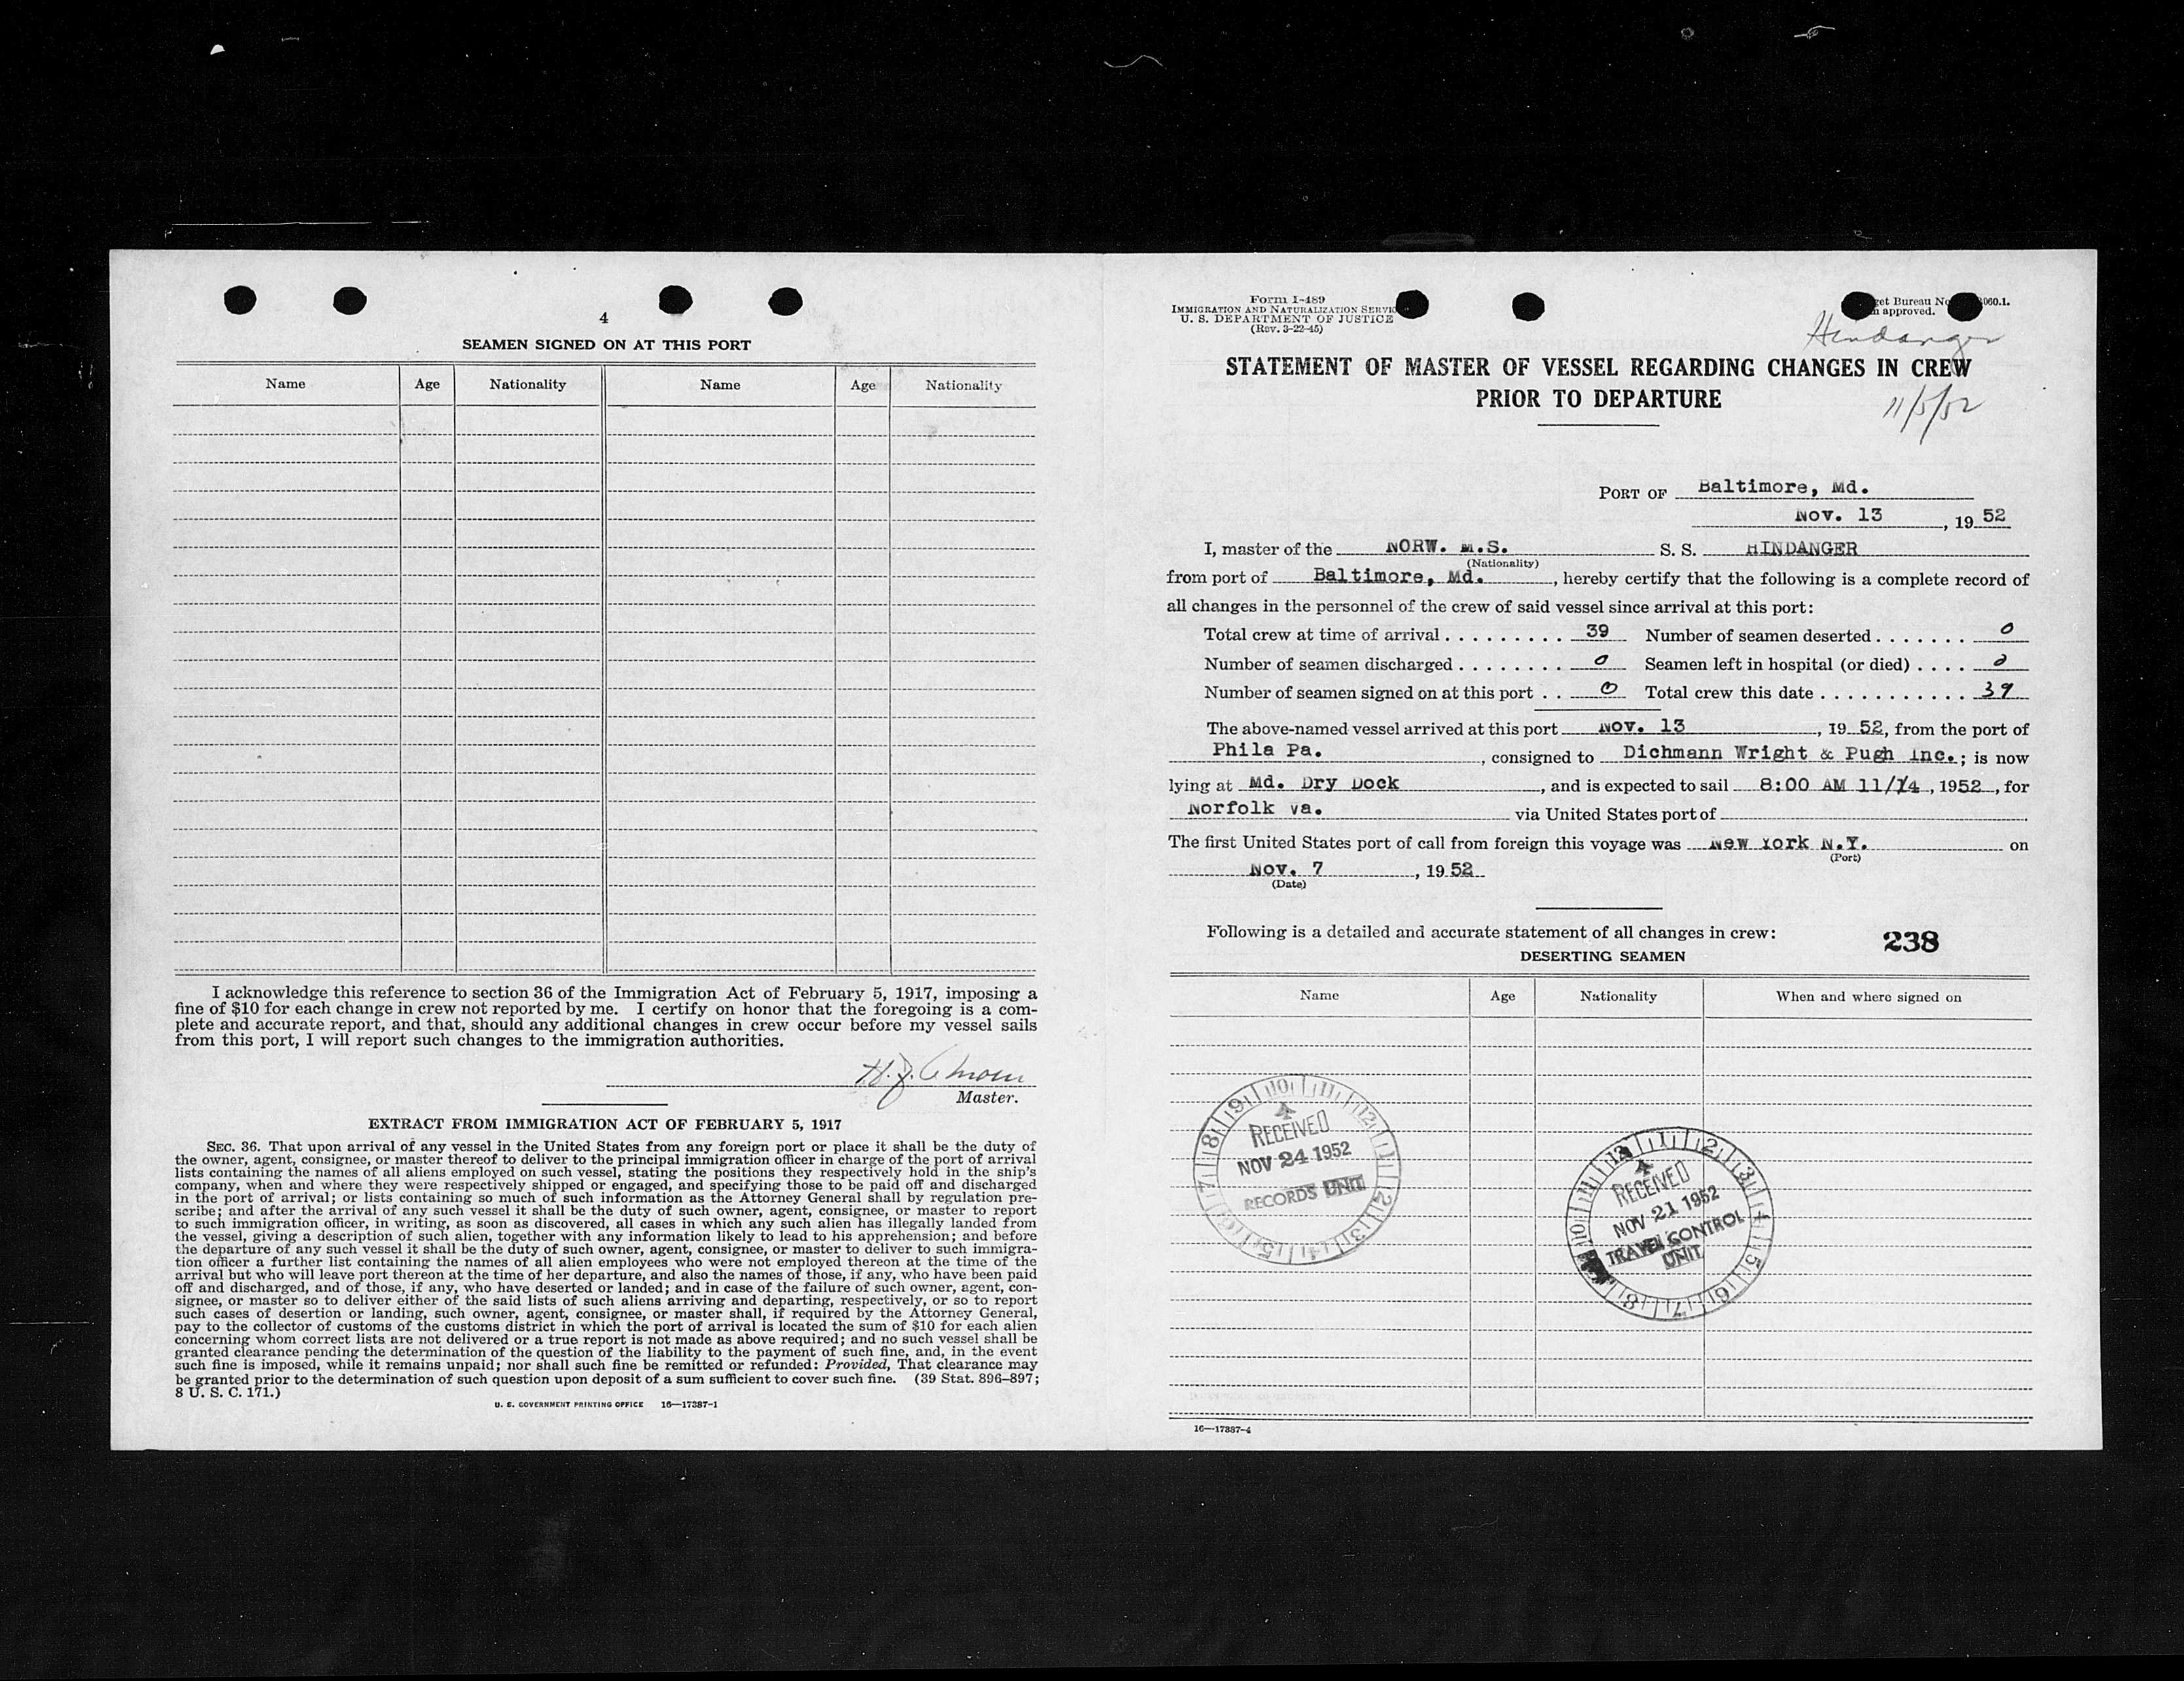 4
SEAMEN SIGNED ON AT THIS PORT
Name Age Nationality Name Age Nationality
I acknowledge this reference to section 36 of the Immigration Act of February 5, 1917, imposing a
fine of $10 for each change in crew not reported by me. I certify on honor that the foregoing is a com-
plete and accurate report, and that, should any additional changes in crew occur before my vessel sails
from this port, I will report such changes to the immigration authorities.
Master.
EXTRACT FROM IMMIGRATION ACT OF FEBRUARY 5, 1917
SEC. 36. That upon arrival of any vessel in the United States from any foreign port or place it shall be the duty of
the owner, agent, consignee, or master thereof to deliver to the principal immigration officer in charge of the port of arrival
lists containing the names of all aliens employed on such vessel, stating the positions they respectively hold in the ship's
company, when and where they were respectively shipped or engaged, and specifying those to be paid off and discharged
in the port of arrival; or lists containing so much of such information as the Attorney General shall by regulation pre-
scribe; and after the arrival of any such vessel it shall be the duty of such owner, agent, consignee, or master to report
to such immigration officer, in writing, as soon as discovered, all cases in which any such alien has illegally landed from
the vessel, giving a description of such alien, together with any information likely to lead to his apprehension; and before
the departure of any such vessel it shall be the duty of such owner, agent, consignee, or master to deliver to such immigra-
tion officer a further list containing the names of all alien employees who were not employed thereon at the time of the
arrival but who will leave port thereon at the time of her departure, and also the names of those, if any, who have been paid
off and discharged, and of those, if any, who have deserted or landed; and in case of the failure of such owner, agent, con-
signee, or master so to deliver either of the said lists of such aliens arriving and departing, respectively, or so to report
such cases of desertion or landing, such owner, agent, consignee, or master shall, if required by the Attorney General,
pay to the collector of customs of the customs district in which the port of arrival is located the sum of $10 for each alien
concerning whom correct lists are not delivered or a true report is not made as above required; and no such vessel shall be
granted clearance pending the determination of the question of the liability to the payment of such fine, and, in the event
such fine is imposed, while it remains unpaid; nor shall such fine be remitted or refunded: Provided, That clearance may
be granted prior to the determination of such question upon deposit of a sum sufficient to cover such fine. (39 Stat. 896–897;
8 U. S. C. 171.)
U. S. GOVERNMENT PRINTING OFFICE 16—17387-1
Form I-489
IMMIGRATION AND NATURALIZATION
U. S. DEPARTMENT OF JUSTICE
(Rev. 3-22-45)
Bureau 060.1.
approved.
Hindanger
STATEMENT OF MASTER OF VESSEL REGARDING CHANGES IN CREW
PRIOR TO DEPARTURE
11/5/52
PORT OF Baltimore, Md.
Nov. 13, 19 52
I, master of the NORW. M.S. S. S. HINDANGER
(Nationality)
from port of Baltimore, Md., hereby certify that the following is a complete record of
all changes in the personnel of the crew of said vessel since arrival at this port:
Total crew at time of arrival 39 Number of seamen deserted 0
Number of seamen discharged 0 Seamen left in hospital (or died) 0
Number of seamen signed on at this port 0 Total crew this date 39
The above-named vessel arrived at this port Nov. 13, 19 52, from the port of
Phila Pa., consigned to Dichmann Wright & Pugh Inc.; is now
lying at Md. Dry Dock, and is expected to sail 8:00 AM 11/14, 1952, for
Norfolk Va. via United States port of
The first United States port of call from foreign this voyage was New York N.Y. on
(Port)
Nov. 7, 19 52
(Date)
Following is a detailed and accurate statement of all changes in crew:
238
DESERTING SEAMEN
Name Age Nationality When and where signed on
RECEIVED
NOV 24 1952
RECORDS UNIT
RECEIVED
NOV 21 1952
TRAVEL CONTROL
UNIT
16—17387-4